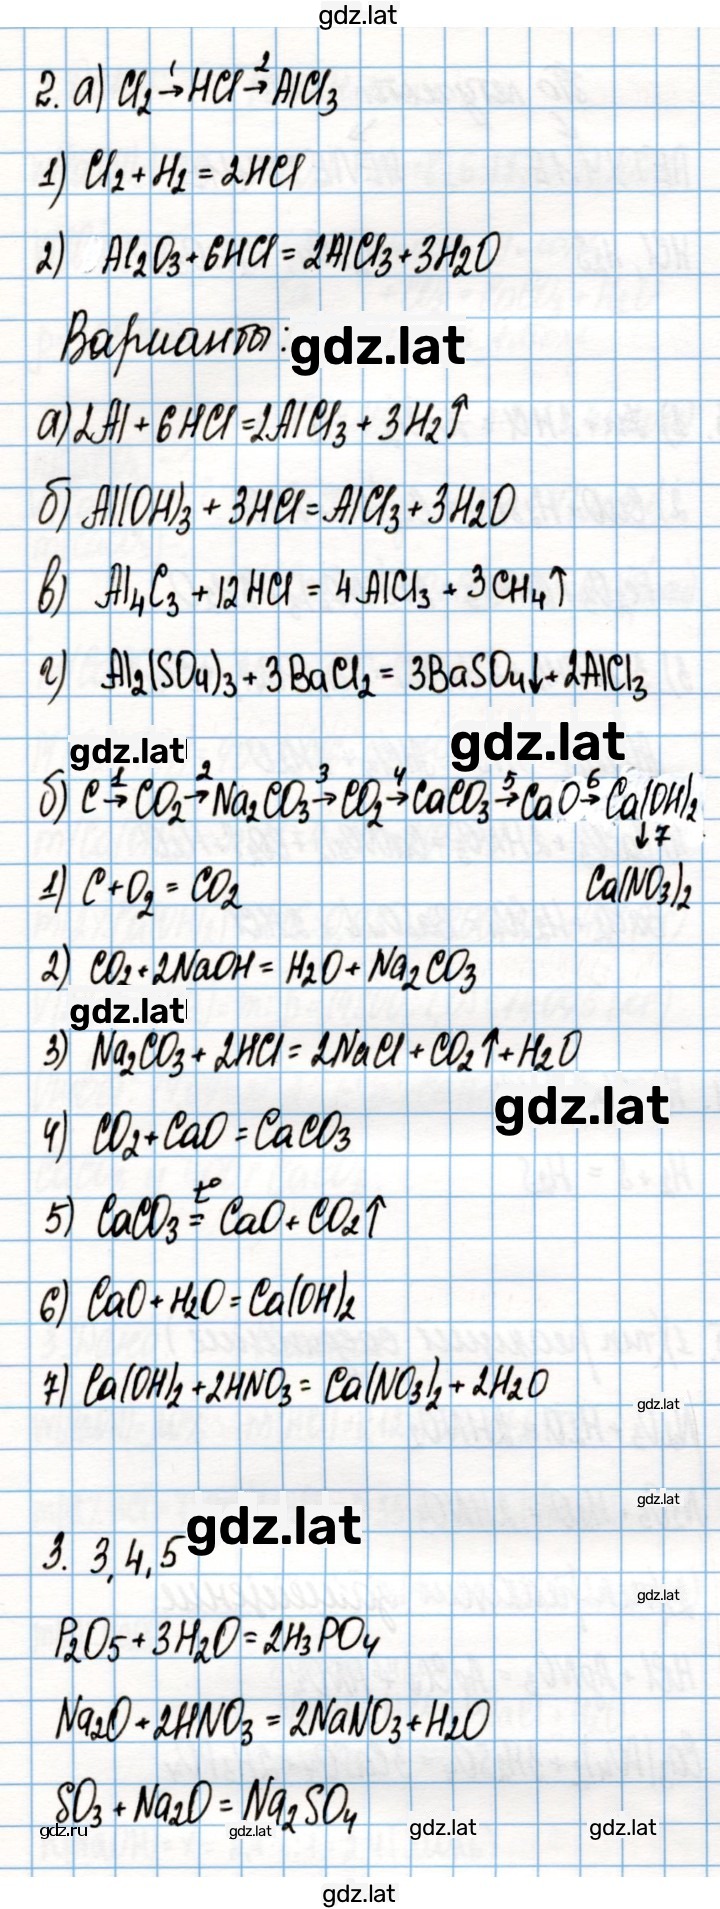 gdz.lat
2. а) Cl₂ →¹ HCl →² AlCl₃
1) Cl₂ + H₂ = 2HCl
2) Al₂O₃ + 6HCl = 2AlCl₃ + 3H₂O
Варианты: gdz.lat
а) 2Al + 6HCl = 2AlCl₃ + 3H₂↑
б) Al(OH)₃ + 3HCl = AlCl₃ + 3H₂O
в) Al₄C₃ + 12HCl = 4AlCl₃ + 3CH₄↑
г) Al₂(SO₄)₃ + 3BaCl₂ = 3BaSO₄↓ + 2AlCl₃
gdz.lat gdz.lat
б) C →¹ CO₂ →² Na₂CO₃ →³ CO₂ →⁴ CaCO₃ →⁵ CaO →⁶ Ca(OH)₂
↓7
1) C + O₂ = CO₂ Ca(NO₃)₂
2) CO₂ + 2NaOH = H₂O + Na₂CO₃
gdz.lat
3) Na₂CO₃ + 2HCl = 2NaCl + CO₂↑ + H₂O
gdz.lat
4) CO₂ + CaO = CaCO₃
5) CaCO₃ =^{t°} CaO + CO₂↑
6) CaO + H₂O = Ca(OH)₂
7) Ca(OH)₂ + 2HNO₃ = Ca(NO₃)₂ + 2H₂O
gdz.lat
gdz.lat
gdz.lat
3. 3, 4, 5
gdz.lat
P₂O₅ + 3H₂O = 2H₃PO₄
Na₂O + 2HNO₃ = 2NaNO₃ + H₂O
SO₃ + Na₂O = Na₂SO₄
gdz.ru gdz.lat gdz.lat gdz.lat
gdz.lat